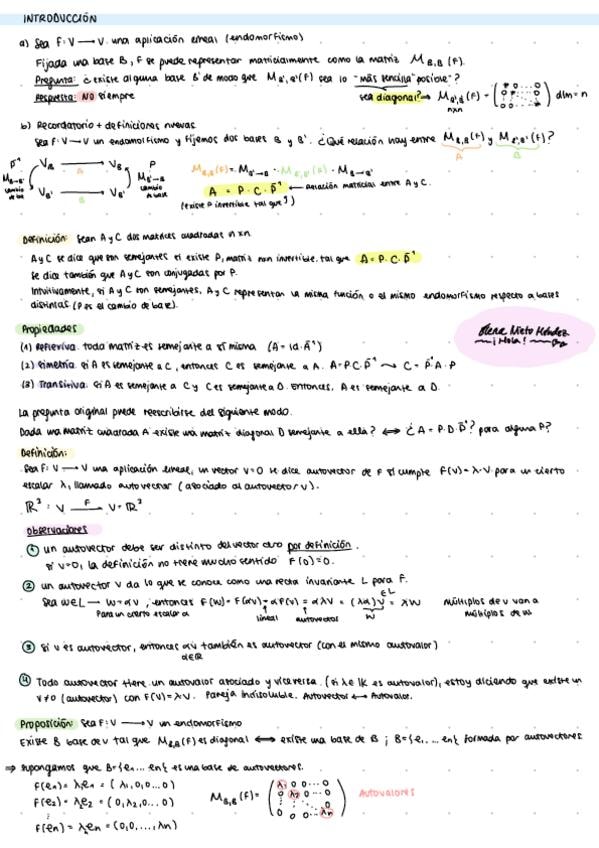 INTRODUCCIÓN
a) Sea F: V → V una aplicación lineal (endomorfismo)
Fijada una base B, F se puede representar matricialmente como la matriz M_B,B (F).
Pregunta: ¿existe alguna base B' de modo que M_B',B'(F) sea lo "más sencilla" posible?
Respuesta: NO siempre
sea diagonal? → M_B',B (F) = dim = n
nxn
b) Recordatorio + definiciones nuevas
Sea F: V → V un endomorfismo y fijemos dos bases B y B'. ¿Qué relación hay entre M_B,B(F) y M_B',B'(F)?
A B
P⁻¹ V_B → V_B P
M_B→B' A M_B'→B
cambio de base V_B' → V_B' cambio de base
B
M_B,B(F) = M_B'→B · M_B',B'(F) · M_B→B'
A = P · C · P⁻¹ ← Relación matricial entre A y C.
(existe P invertible tal que ↑)
Definición: Sean A y C dos matrices cuadradas n x n.
A y C se dice que son semejantes si existe P, matriz nxn invertible, tal que A = P · C · P⁻¹
Se dice también que A y C son conjugadas por P.
Intuitivamente, si A y C son semejantes, A y C representan la misma función o el mismo endomorfismo respecto a bases
distintas (P es el cambio de base).
Propiedades
Elena Nieto Méndez
¡Hola!
(1) Reflexiva. toda matriz es semejante a sí misma
(2) Simetría: si A es semejante a C, entonces C es semejante a A. A = P C P⁻¹ → C = P⁻¹ A · P
(3) Transitiva. Si A es semejante a C y C es semejante a D. Entonces, A es semejante a D.
La pregunta original puede reescribirse del siguiente modo.
Dada una matriz cuadrada A existe una matriz diagonal D semejante a ella? ⟺ ¿A = P · D · P⁻¹? para alguna P?
Definición:
Sea F: V → V una aplicación lineal, un vector v=0 se dice autovector de F si cumple F(v) = λ · v para un cierto
escalar λ, llamado autovector (asociado al autovector v).
ℝ³ : V —F→ V = ℝ³
Observaciones
① un autovector debe ser distinto del vector cero por definición.
Si v=0, la definición no tiene mucho sentido F(0)=0.
② un autovector v da lo que se conoce como una recta invariante L para F.
Sea w∈L → w = αv ; entonces F(w) = F(αv) = αF(v) = αλv = (λα)v = λw
∈L
Para un cierto escalar α lineal autovector w
múltiplos de v van a múltiplos de w
③ Si v es autovector, entonces αv también es autovector (con el mismo autovalor)
α∈ℝ
④ Todo autovector tiene un autovalor asociado y viceversa. (si λ∈ lK es autovalor), estoy diciendo que existe un
v≠0 (autovector) con F(v) = λv. Pareja indisoluble. Autovector ↔ Autovalor.
Proposición: Sea F: V → V un endomorfismo
Existe B base de v tal que M_B,B(F) es diagonal ⟺ existe una base de B ; B={e₁... en} formada por autovectores
⇒ supongamos que B={e₁... en} es una base de autovectores.
F(e₁) = λ₁e₁ = (λ₁,0,0...0)
F(e₂) = λ₂e₂ = (0,λ₂,0...0)
⋮
F(en) = λnen = (0,0,...,λn)
M_B,B(F) = Autovalores